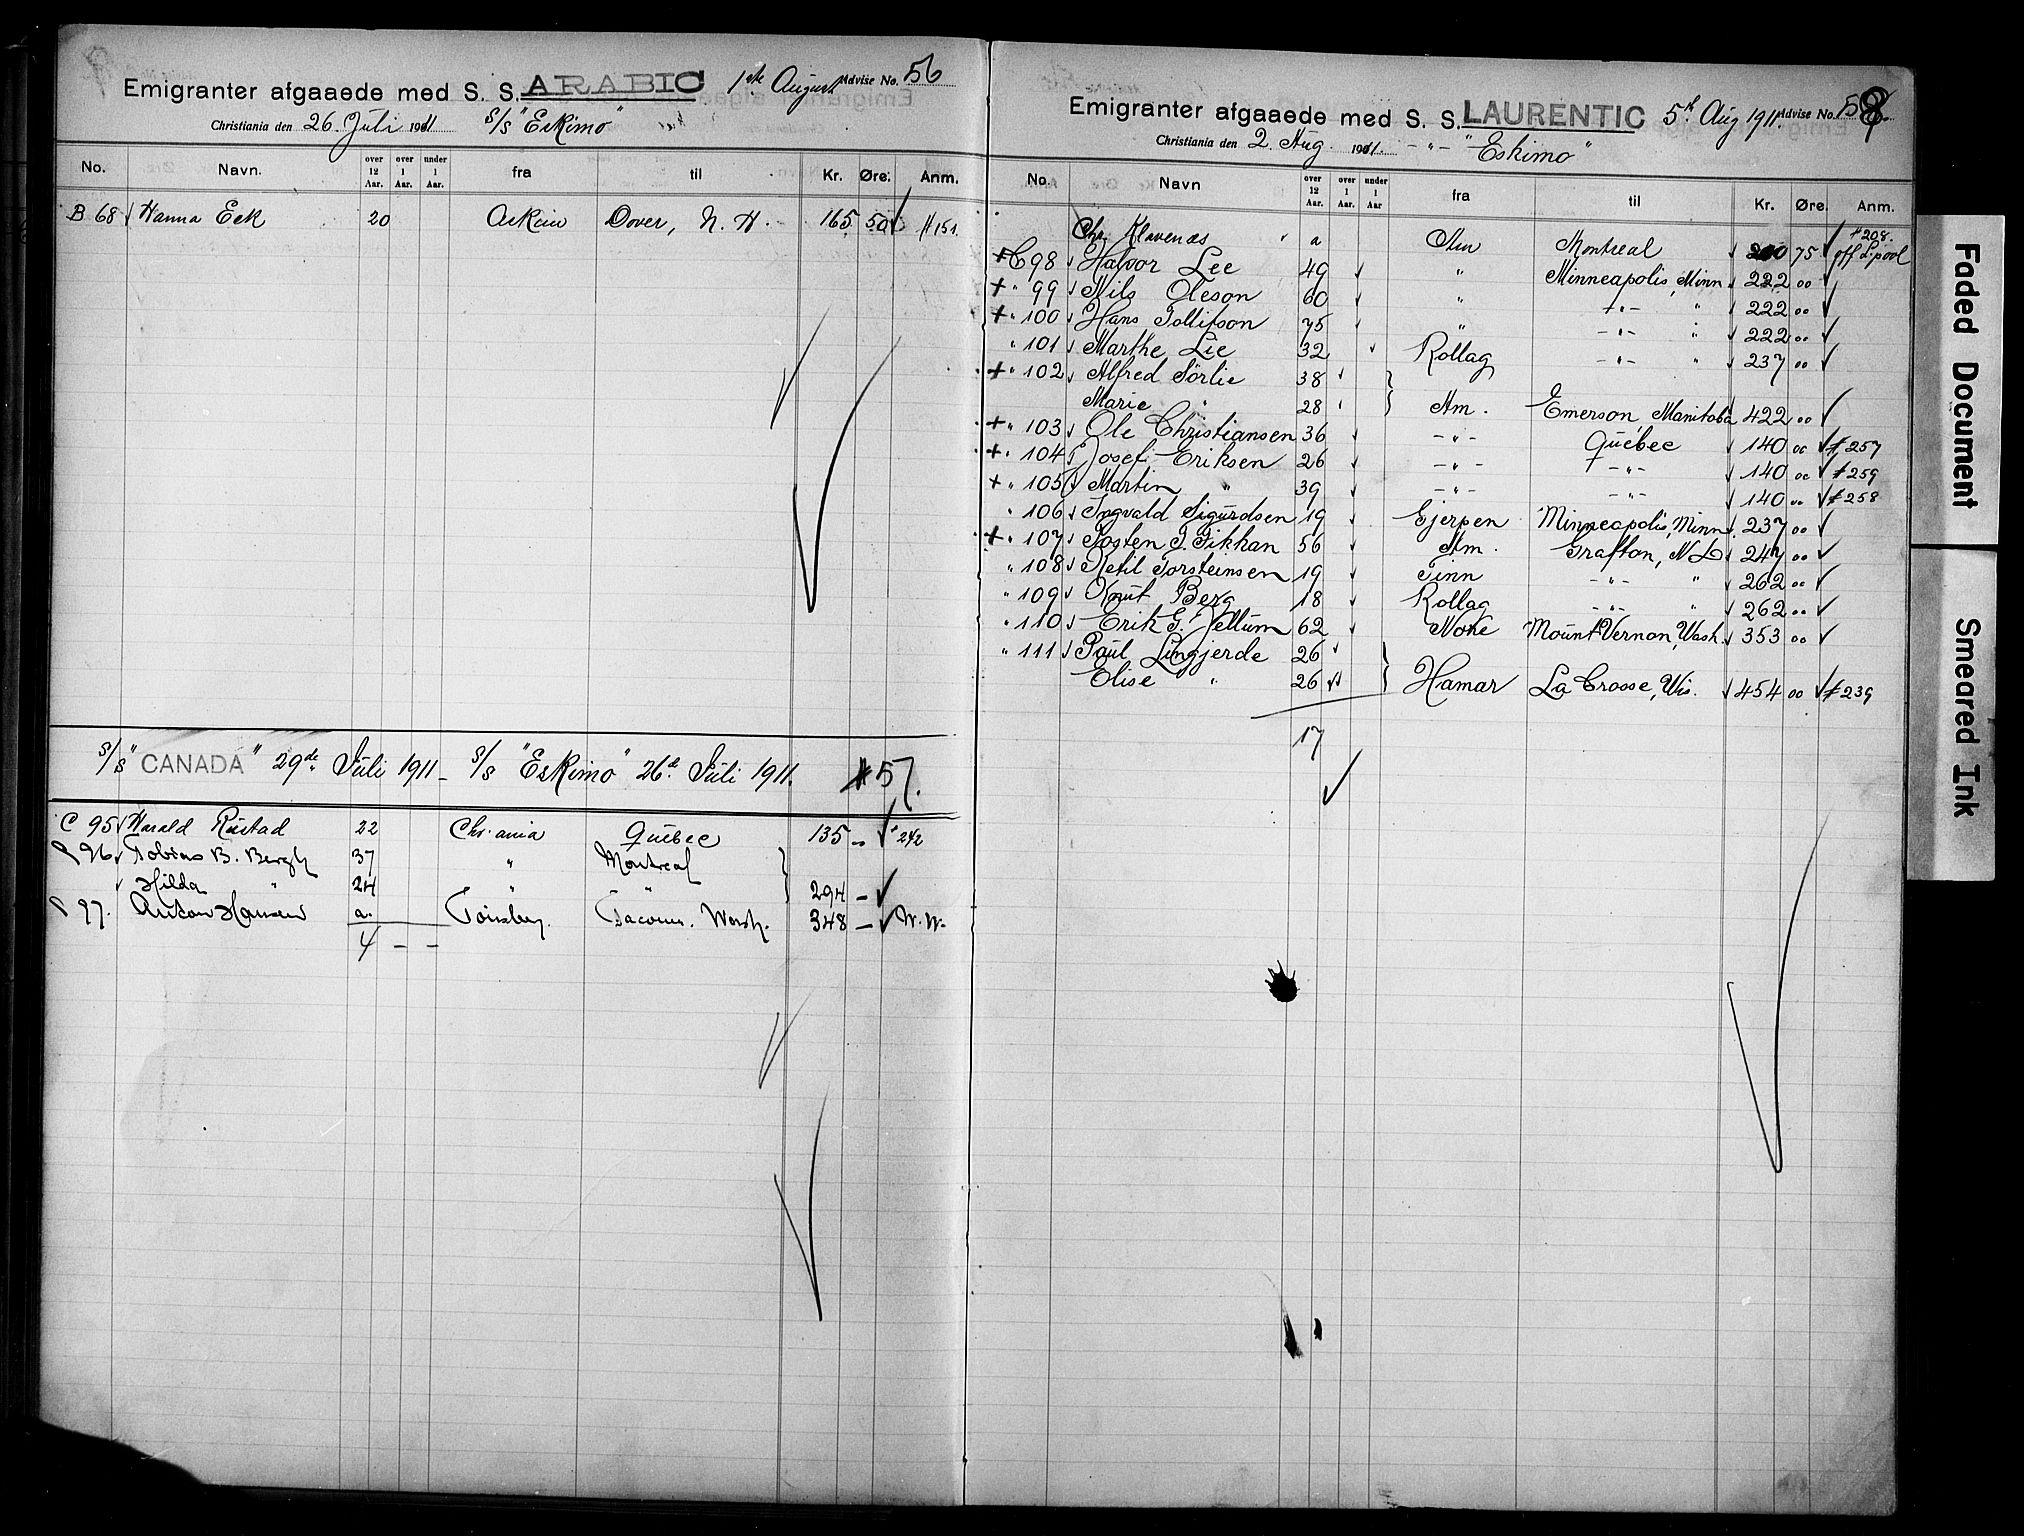 Emigranter afgaaede med S. S. ARABIC 1ste August Advise No. 56
Christiania den 26. Juli 1911 S/S "Eskimo"
No. Navn. over 12 Aar. over 1 Aar. under 1 Aar. fra til Kr. Øre. Anm.
B 68 Hanna Eek 20 Askim Dover, N. H. 165 50 # 151
S/S "CANADA" 29de Juli 1911 - S/S "Eskimo" 26d Juli 1911. # 57.
C 95 Harald Rustad 22 Chr.ania Québec 135 - # 242
" 96 Tobias B. Bergh 37 " Montreal
Hilda " 24 " " 294 -
" 97. Anton Hansen a. Tönsberg. Tacoma. Wash. 348 - W. W.
4 - -
Emigranter afgaaede med S. S. LAURENTIC 5d Aug 1911. Advise No. 58
Christiania den 2. Aug. 1911. - " - "Eskimo"
No. Navn over 12 Aar. over 1 Aar. under 1 Aar fra til Kr. Øre. Anm.
Chr. Klavenæs a Am Montreal 75 # 208. off L.pool
+ C 98 Halvor Lee 49 " Minneapolis, Minn 222 00
+ " 99 Nils Oleson 60 " - " - " 222 00
+ " 100 Hans Tollifson 75 " - " - " 222 00
" 101 Marthe Lie 32 Rollag - " - " 237 00
+ " 102 Alfred Sörlie 38
Marie " 28 Am. Emerson Manitoba 422 00
+ " 103 Ole Christiansen 36 - " - Québec 140 00 # 257
+ " 104 Josef Eriksen 26 - " - - " - 140 00 # 259
+ " 105 Martin " 39 - " - - " - 140 00 # 258
" 106 Ingvald Sigurdsen 19 Gjerpen Minneapolis, Minn. 237 00
+ " 107 Tosten J. Fikkan 56 Am. Grafton, N.D. 247 00
" 108 Ketil Torsteinsen 19 Tinn - " - " 262 00
" 109 Knut Berg 18 Rollag - " - " 262 00
" 110 Erik G. Jellum 62 Nore Mount Vernon, Wash. 353 00
" 111 Paul Lingjerde 26
Elise " 26 Hamar La Crosse, Wis. 454 00 # 239
17
Faded Document
Smeared Ink